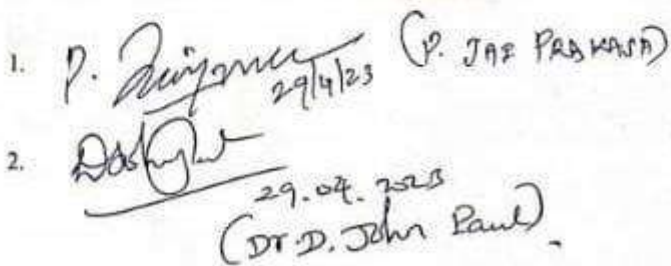 1. P.
29/4/23 (P. JAI PRAKASA)
2.
29.04.2023
(Dr. D. John Paul).